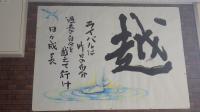 越
ライバルは
昨日の自分
過去の自分を越えて行け
日々成長